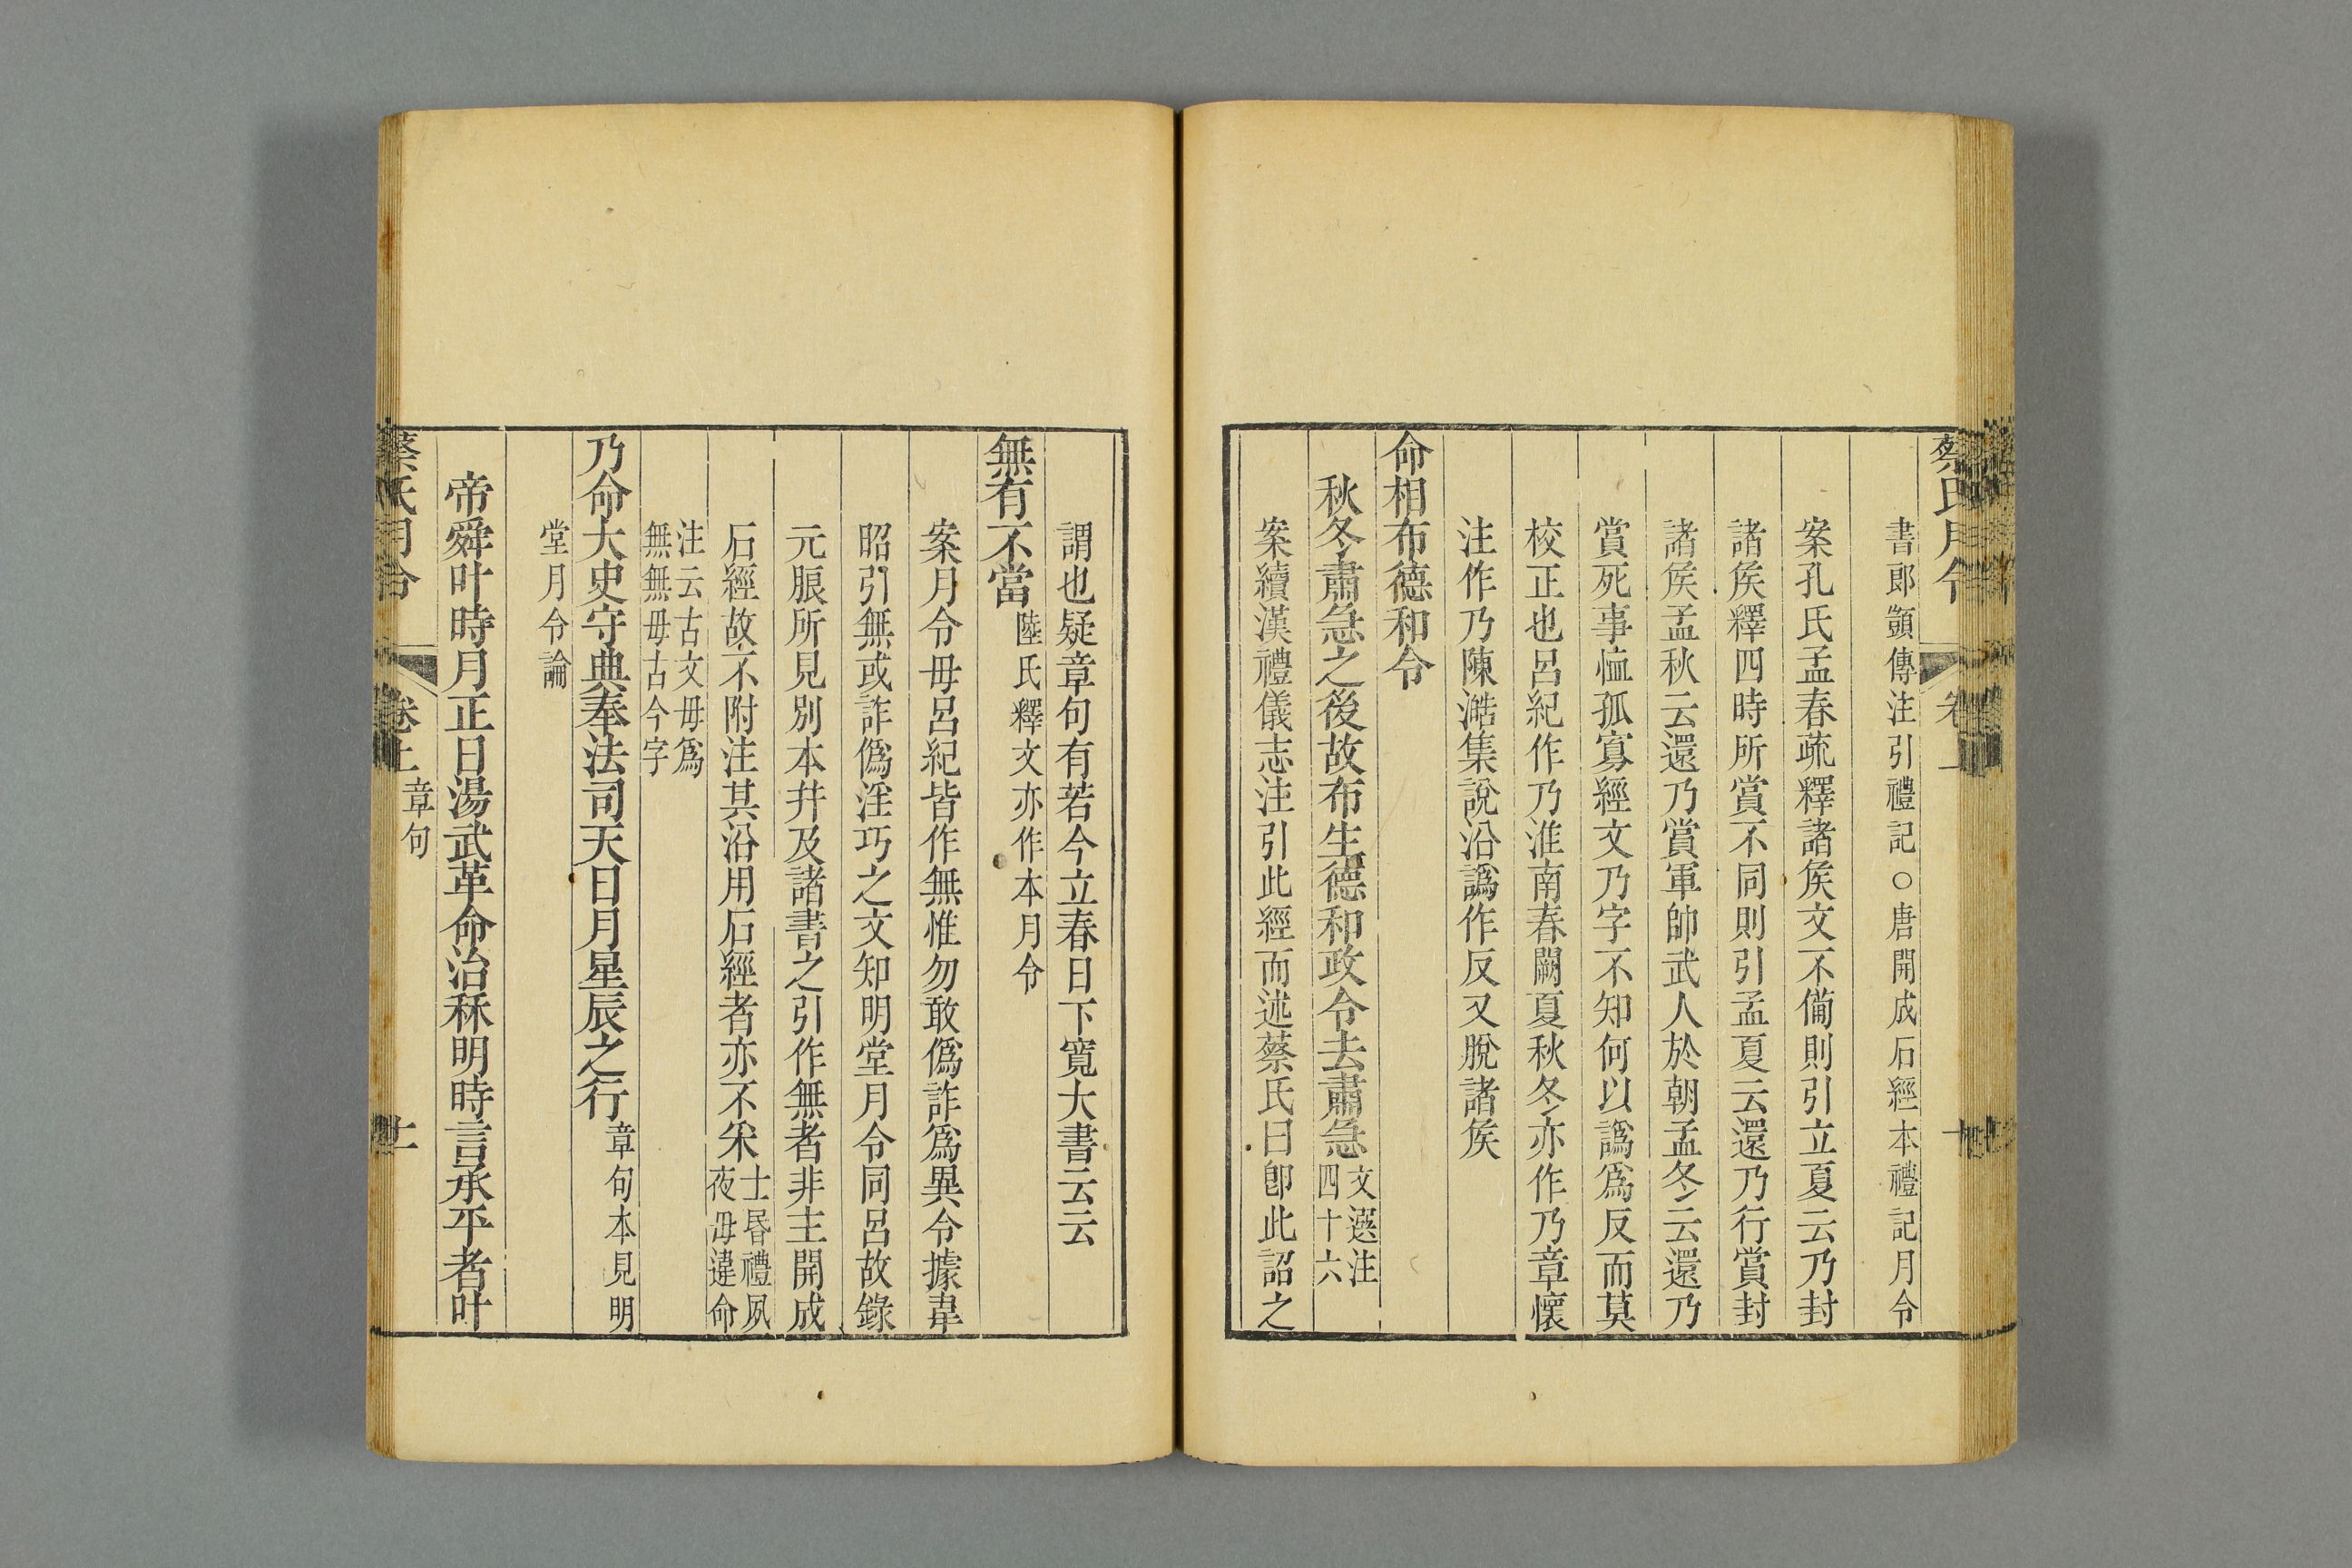 蔡氏月令
卷上
書郎顗傳注引禮記○唐開成石經本禮記月令
案孔氏孟春疏釋諸矦文不備則引立夏云乃封
諸矦釋四時所賞不同則引孟夏云還乃行賞封
諸矦孟秋云還乃賞軍帥武人於朝孟冬云還乃
賞死事恤孤寡經文乃字不知何以譌爲反而莫
校正也呂紀作乃淮南春闕夏秋冬亦作乃章懷
注作乃陳澔集說沿譌作反又脫諸矦
命相布德和令
秋冬肅急之後故布生德和政令去肅急文選注
四十六
案續漢禮儀志注引此經而述蔡氏曰卽此詔之
謂也疑章句有若今立春日下寬大書云云
無有不當陸氏釋文亦作本月令
案月令毋呂紀皆作無惟勿敢僞詐爲異令據韋
昭引無或詐僞淫巧之文知明堂月令同呂故錄
元脤所見別本幷及諸書之引作無者非主開成
石經故不附注其沿用石經者亦不采士昬禮夙
夜毋違命
注云古文毋爲
無無毋古今字
乃命大史守典奉法司天日月星辰之行章句本見明
堂月令論
帝舜叶時月正日湯武革命治秝明時言承平者叶
蔡氏月令
卷上
章句